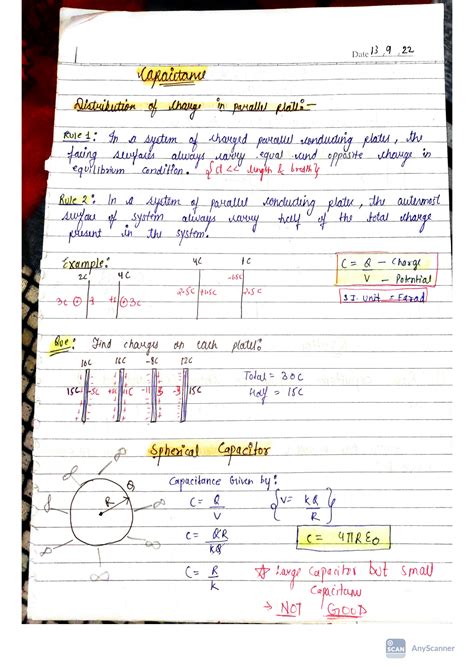 Date 13.9.22
Capacitance
Distribution of charge in parallel plate :-
Rule 1 : In a system of charged parallel conducting plates, the
facing surfaces always carry equal and opposite charge in
equilibrium condition. {d << length & breadth}
Rule 2 : In a system of parallel conducting plates, the outermost
surface of system always carry half of the total charge
present in the system.
Example :
2C 4C
3C 3C
4C 1C
2.5C 2.5C
C = Q - Charge
V - Potential
S.I. unit = Farad
Que : Find charges on each plate :
10C 16C -8C 12C
15C -5C 15C
Total = 30C
Half = 15C
Spherical Capacitor
Capacitance Given by :
C = Q / V
{V = KQ / R}
C = QR / KQ
C = 4πRε0
C = R / K
R Q
☆ Large Capacitor but small
Capacitance
→ NOT GOOD
SCAN AnyScanner